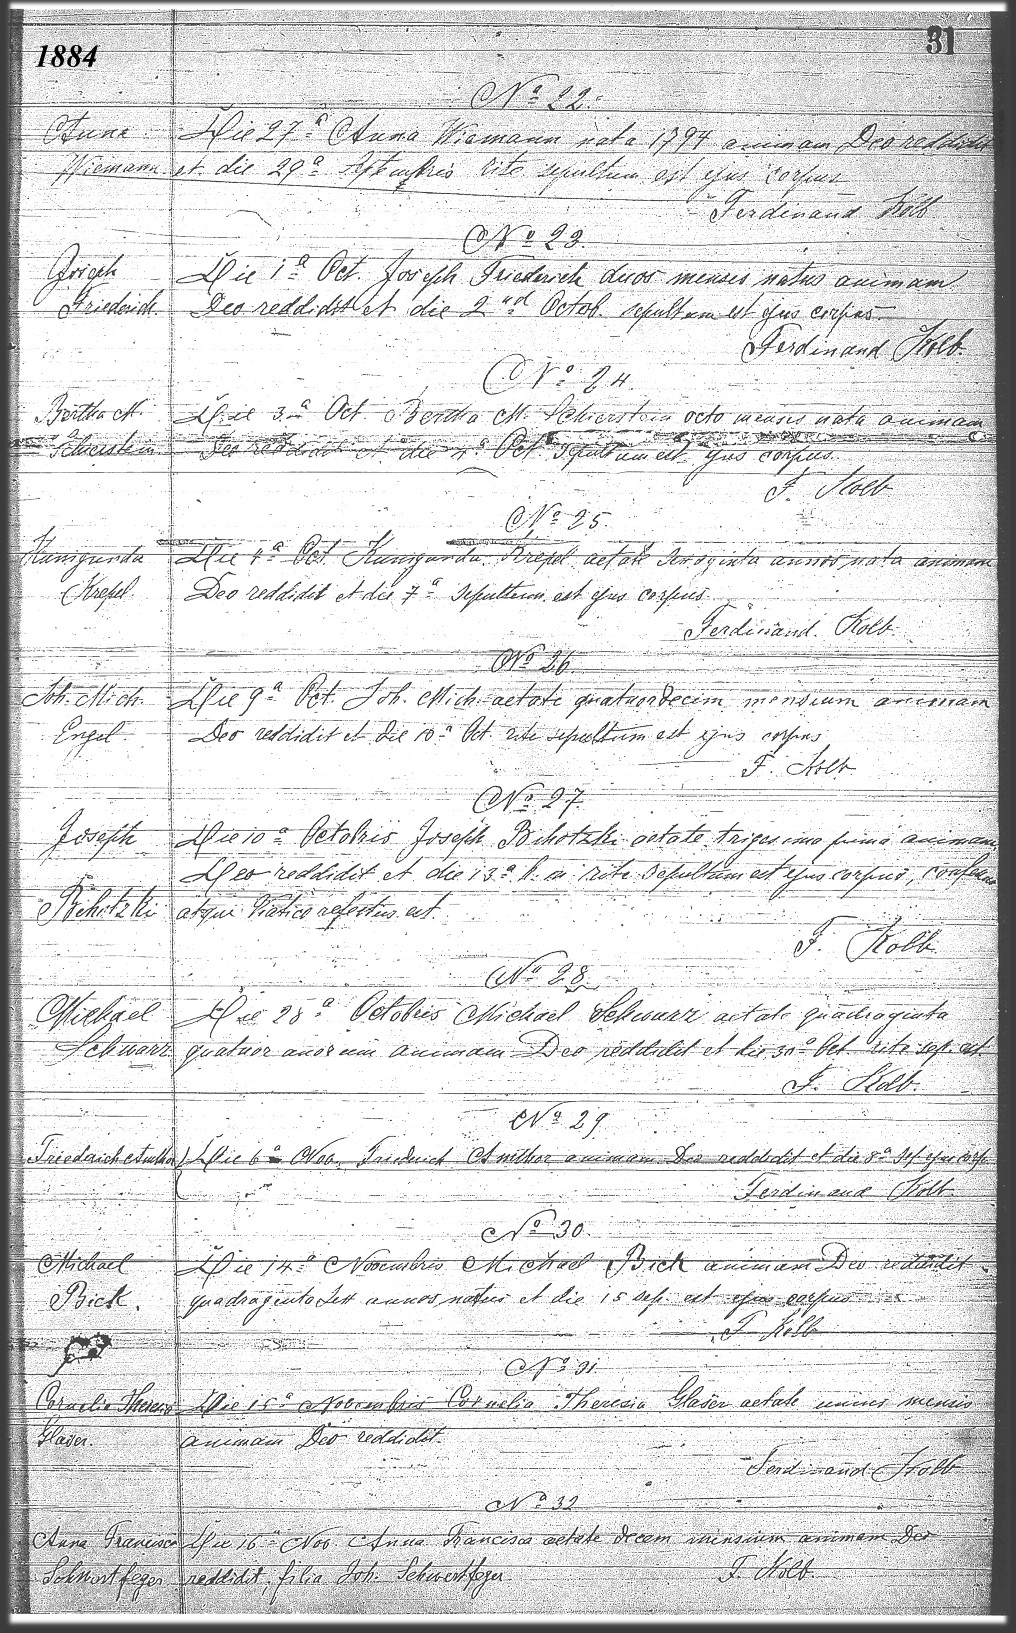 1884
31
No 22.
Anna Die 27a Anna Wiemann nata 1794 animam Deo reddidit
Wiemann et die 29a Septembris rite sepultum est ejus corpus
Ferdinand Kolb
No 23.
Joseph Die 1a Oct. Joseph Friederich duos menses natus animam
Friederich. Deo reddidit et die 2nd Octob. sepultum est ejus corpus
Ferdinand Kolb.
No 24.
Bertha M. Die 3a Oct. Bertha M. Schierstein octo menses nata animam
Schierstein Deo reddidit et die 4a Oct. sepultum est ejus corpus.
F. Kolb
No 25.
Kunigunda Die 4a Oct. Kunigunda Krepel aetate annos nata animam
Krepel Deo reddidit et die 7a sepultum est ejus corpus
Ferdinand Kolb
No 26.
Joh. Mich. Die 9a Oct. Joh. Mich. aetate quatuordecim mensium animam
Engel Deo reddidit et die 10a Oct. rite sepultum est ejus corpus
F. Kolb
No 27.
Joseph Die 10a Octobris Joseph aetate trigesimo primo animam
Deo reddidit et die 13a rite sepultum est ejus corpus,
atque Viatico refectus est.
F. Kolb
No 28.
Michael Die 28a Octobris Michael Schwarz aetate quadraginta
Schwarz quatuor anorum animam Deo reddidit et die 30a Oct. rite sep. est.
F. Kolb.
No 29
Friedrich Die 6a Nov. Friedrich animam Deo reddidit et die 8a sep. ejus corp.
Ferdinand Kolb
No 30.
Michael Die 14a Novembris Michael Bick animam Deo reddidit
Bick. quadraginta annos natus et die 15 sep. est ejus corpus
F Kolb
No 31
Cornelia Theresia Die 15a Novembris Cornelia Theresia Glaser aetate unius mensis
Glaser. animam Deo reddidit.
Ferdinand Kolb
No 32
Anna Francisca Die 16a Nov. Anna Francisca aetate decem mensium animam Deo
Schwertfeger reddidit. filia Joh. Schwertfeger F. Kolb.